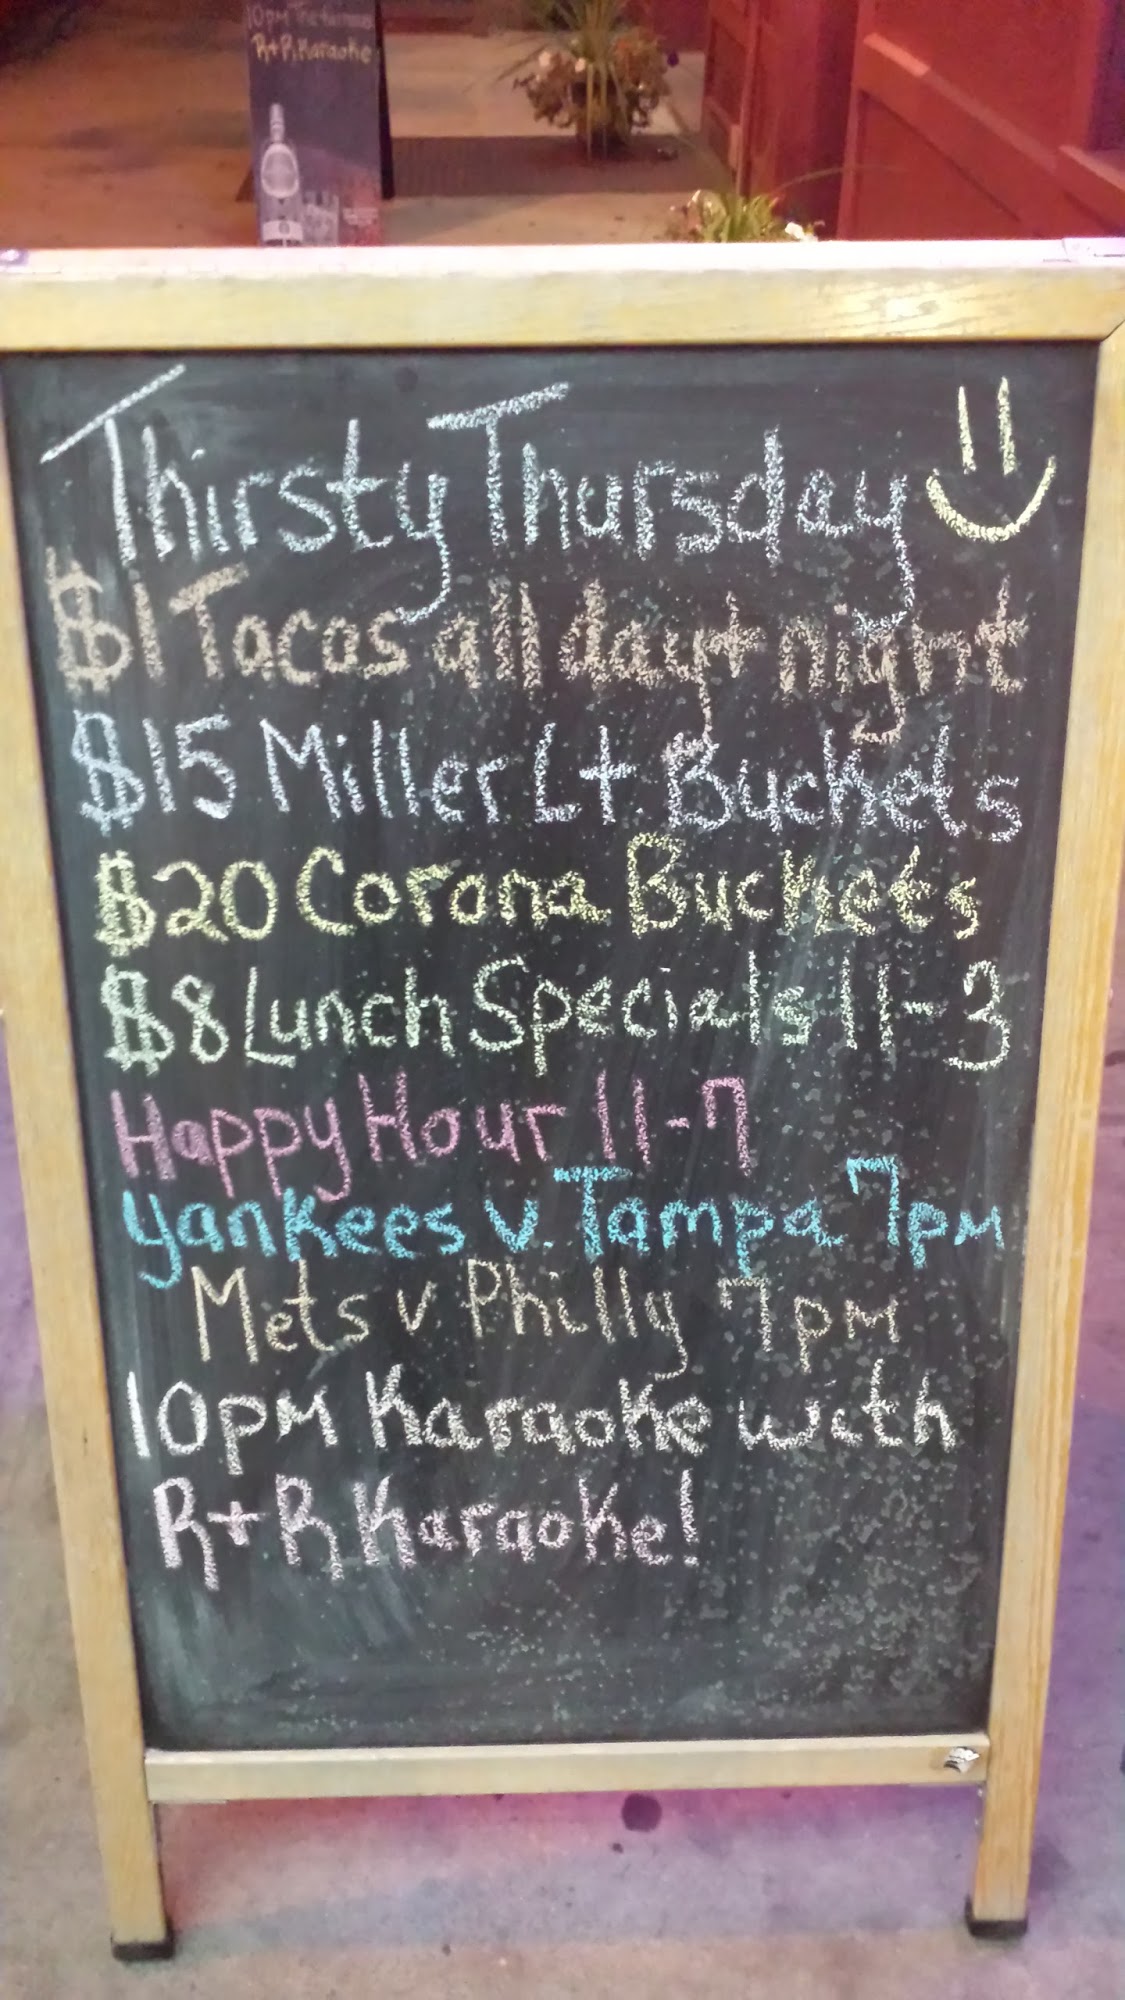 10pm The famous
R+R Karaoke
Thirsty Thursday
$1 Tacos all day + night
$15 Miller Lt. Buckets
$20 Corona Buckets
$8 Lunch Specials 11-3
Happy Hour 11-7
Yankees v. Tampa 7pm
Mets v Philly 7pm
10pm Karaoke with
R+R Karaoke!